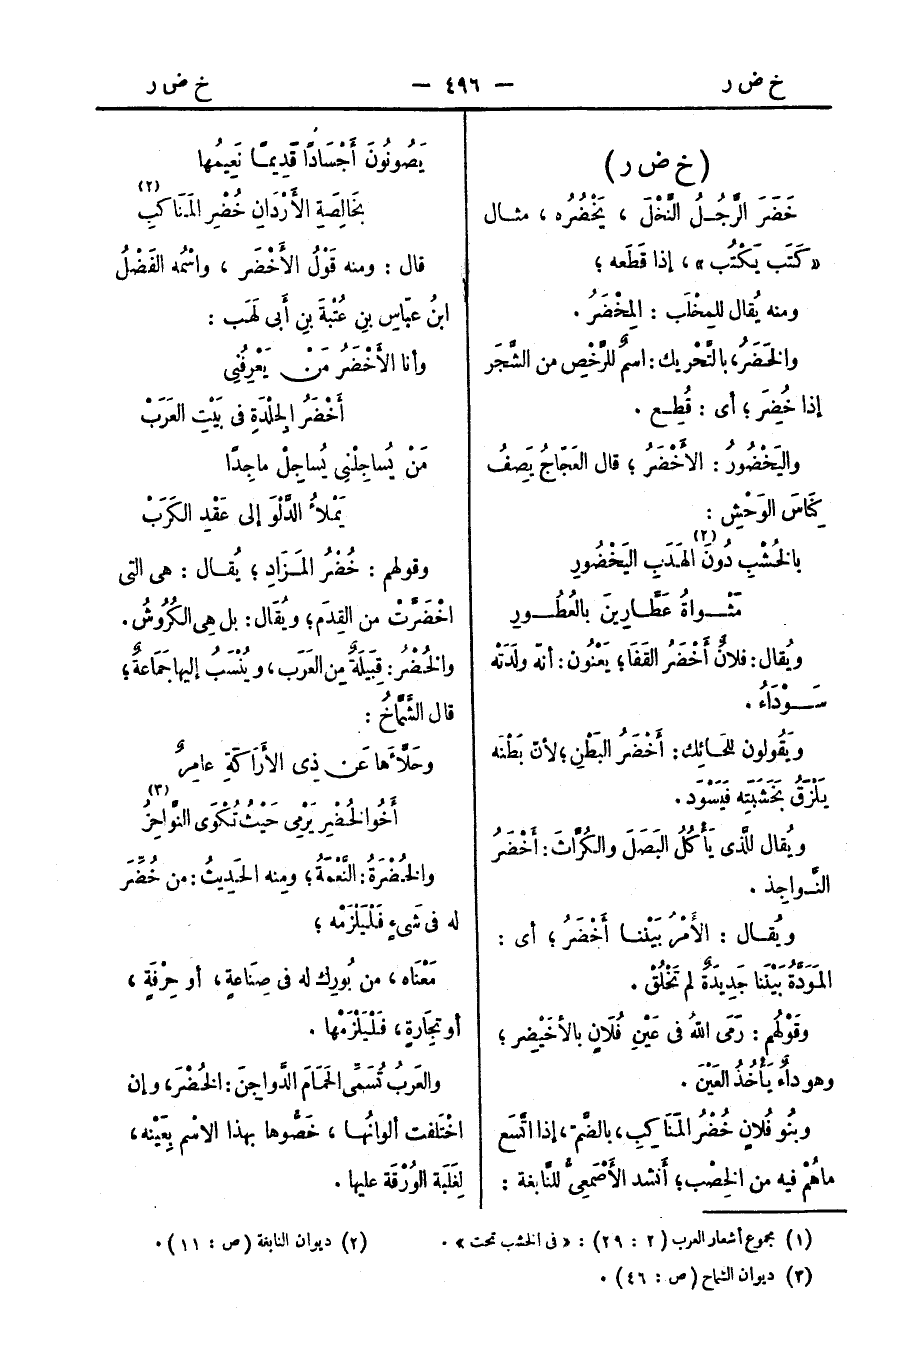 خ ض ر
— ٤٩٦ —
خ ض ر
(خ ض ر)
خَضَرَ الرَّجُـلُ النَّخْلَ ، يَخْضُرُه ، مثـال
«كَتَب يَكْتُب» ، إذا قَطَعه ؛
ومنه يُقال للمِخْلَب : المِخْضَرُ .
والخَضَرُ، بالتَّحْريك: اسمٌ للرَّخْص من الشَّجَر
إذا خُضِرَ ؛ أى : قُطِـع .
واليَخْضُورُ : الأَخْضَرُ ؛ قال العَجّاجُ يَصِفُ
كِنَاسَ الوَحْشِ :
بالخُشْبِ دُونَ الهَدَبِ اليَخْضُورِ (٢)
مَثْـواةُ عَطَّارِينَ بالعُطُـورِ
ويُقال: فلانٌ أَخْضَرُ القَفَا؛ يَعْنُون: أنّه ولَدَتْه
سَـوْدَاءُ .
ويَقُولون للحَائِك: أَخْضَرُ البَطْنِ؛ لأنّ بَطْنَه
يَلْزَقُ بخَشَبَتِه فَيَسْوَد .
ويُقال للّذى يَأْكُلُ البَصَلَ والكُرَّاثَ: أَخْضَرُ
النَّـواجِذ .
ويُقـال : الأَمْرُ بَيْننـا أَخْضَرُ ؛ أى :
المَوَدَّةُ بَيْنَنا جَدِيدَةٌ لم تَخْلُقْ .
وقَوْلُهم : رَمَى اللهُ فى عَيْنِ فُلَانٍ بالأخَيْضِر ؛
وهو داءٌ يَأْخُذُ العَيْنَ .
وبنُو فُلانٍ خُضْرُ المَنَاكِبِ، بالضَّمّ، إذا اتَّسَع
ماهُمْ فيه من الخِصْب؛ أَنشد الأَصْمَعِىُّ للنّابغة :
يَصُونُونَ أَجْسَادًا قَدِيمًـا نَعِيمُها
بخَالِصَةِ الأَرْدَانِ خُضْرِ المَنَاكِبِ (٢)
قال : ومنه قَوْلُ الأَخْضَر ، واسْمُه الفَضْلُ
ابنُ عبّاسِ بنِ عُتْبَةَ بنِ أبى لَهَب :
وأنا الأَخْضَرُ مَنْ يَعْرِفُنِى
أَخْضَرُ الجِلْدَةِ فى بَيْتِ العَرَبْ
مَنْ يُساجِلْنِى يُساجِلْ ماجِدًا
يَمْلأُ الدَّلْوَ إلى عَقْدِ الكَرَبْ
وقولهم : خُضْرُ المَـزَادِ ؛ يُقـال : هى التى
اخْضَرَّتْ من القِدَم؛ ويُقَال: بل هى الكُرُوشُ .
والخُضْرُ: قَبِيلَةٌ من العَرَب، ويُنْسَبُ إليها جَمَاعةٌ؛
قال الشَّمَّاخُ :
وحَلَّأَها عَن ذِى الأَرَاكَةِ عامِرٌ
أَخُو الخُضْرِ يَرْمِى حَيْثُ تُكْوَى النَّواحِزُ (٣)
والخُضْرَةُ: النَّعْمَةُ؛ ومنه الحَدِيثُ: من خُضِّرَ
له فى شَىءٍ فَلْيَلْزَمْه ؛
مَعْناه، من بُورِك له فى صِنَاعةٍ، أو حِرْفَةٍ،
أو تِجَارَةٍ، فَلْيَلْزَمْها .
والعَرَبُ تُسَمِّى الحَمَامَ الدَّواجِنَ: الخُضْرَ، وإن
اخْتَلفت ألوانُهـا ، خَصُّوها بهذا الاسْم بعَيْنه ،
لِغَلَبَة الوُرْقَة عليها .
(١) مجموع أشعار العرب (٢ : ٢٩) : «فى الخشب تحت» .
(٢) ديوان النابغة (ص : ١١) .
(٣) ديوان الشماخ (ص : ٤٦) .